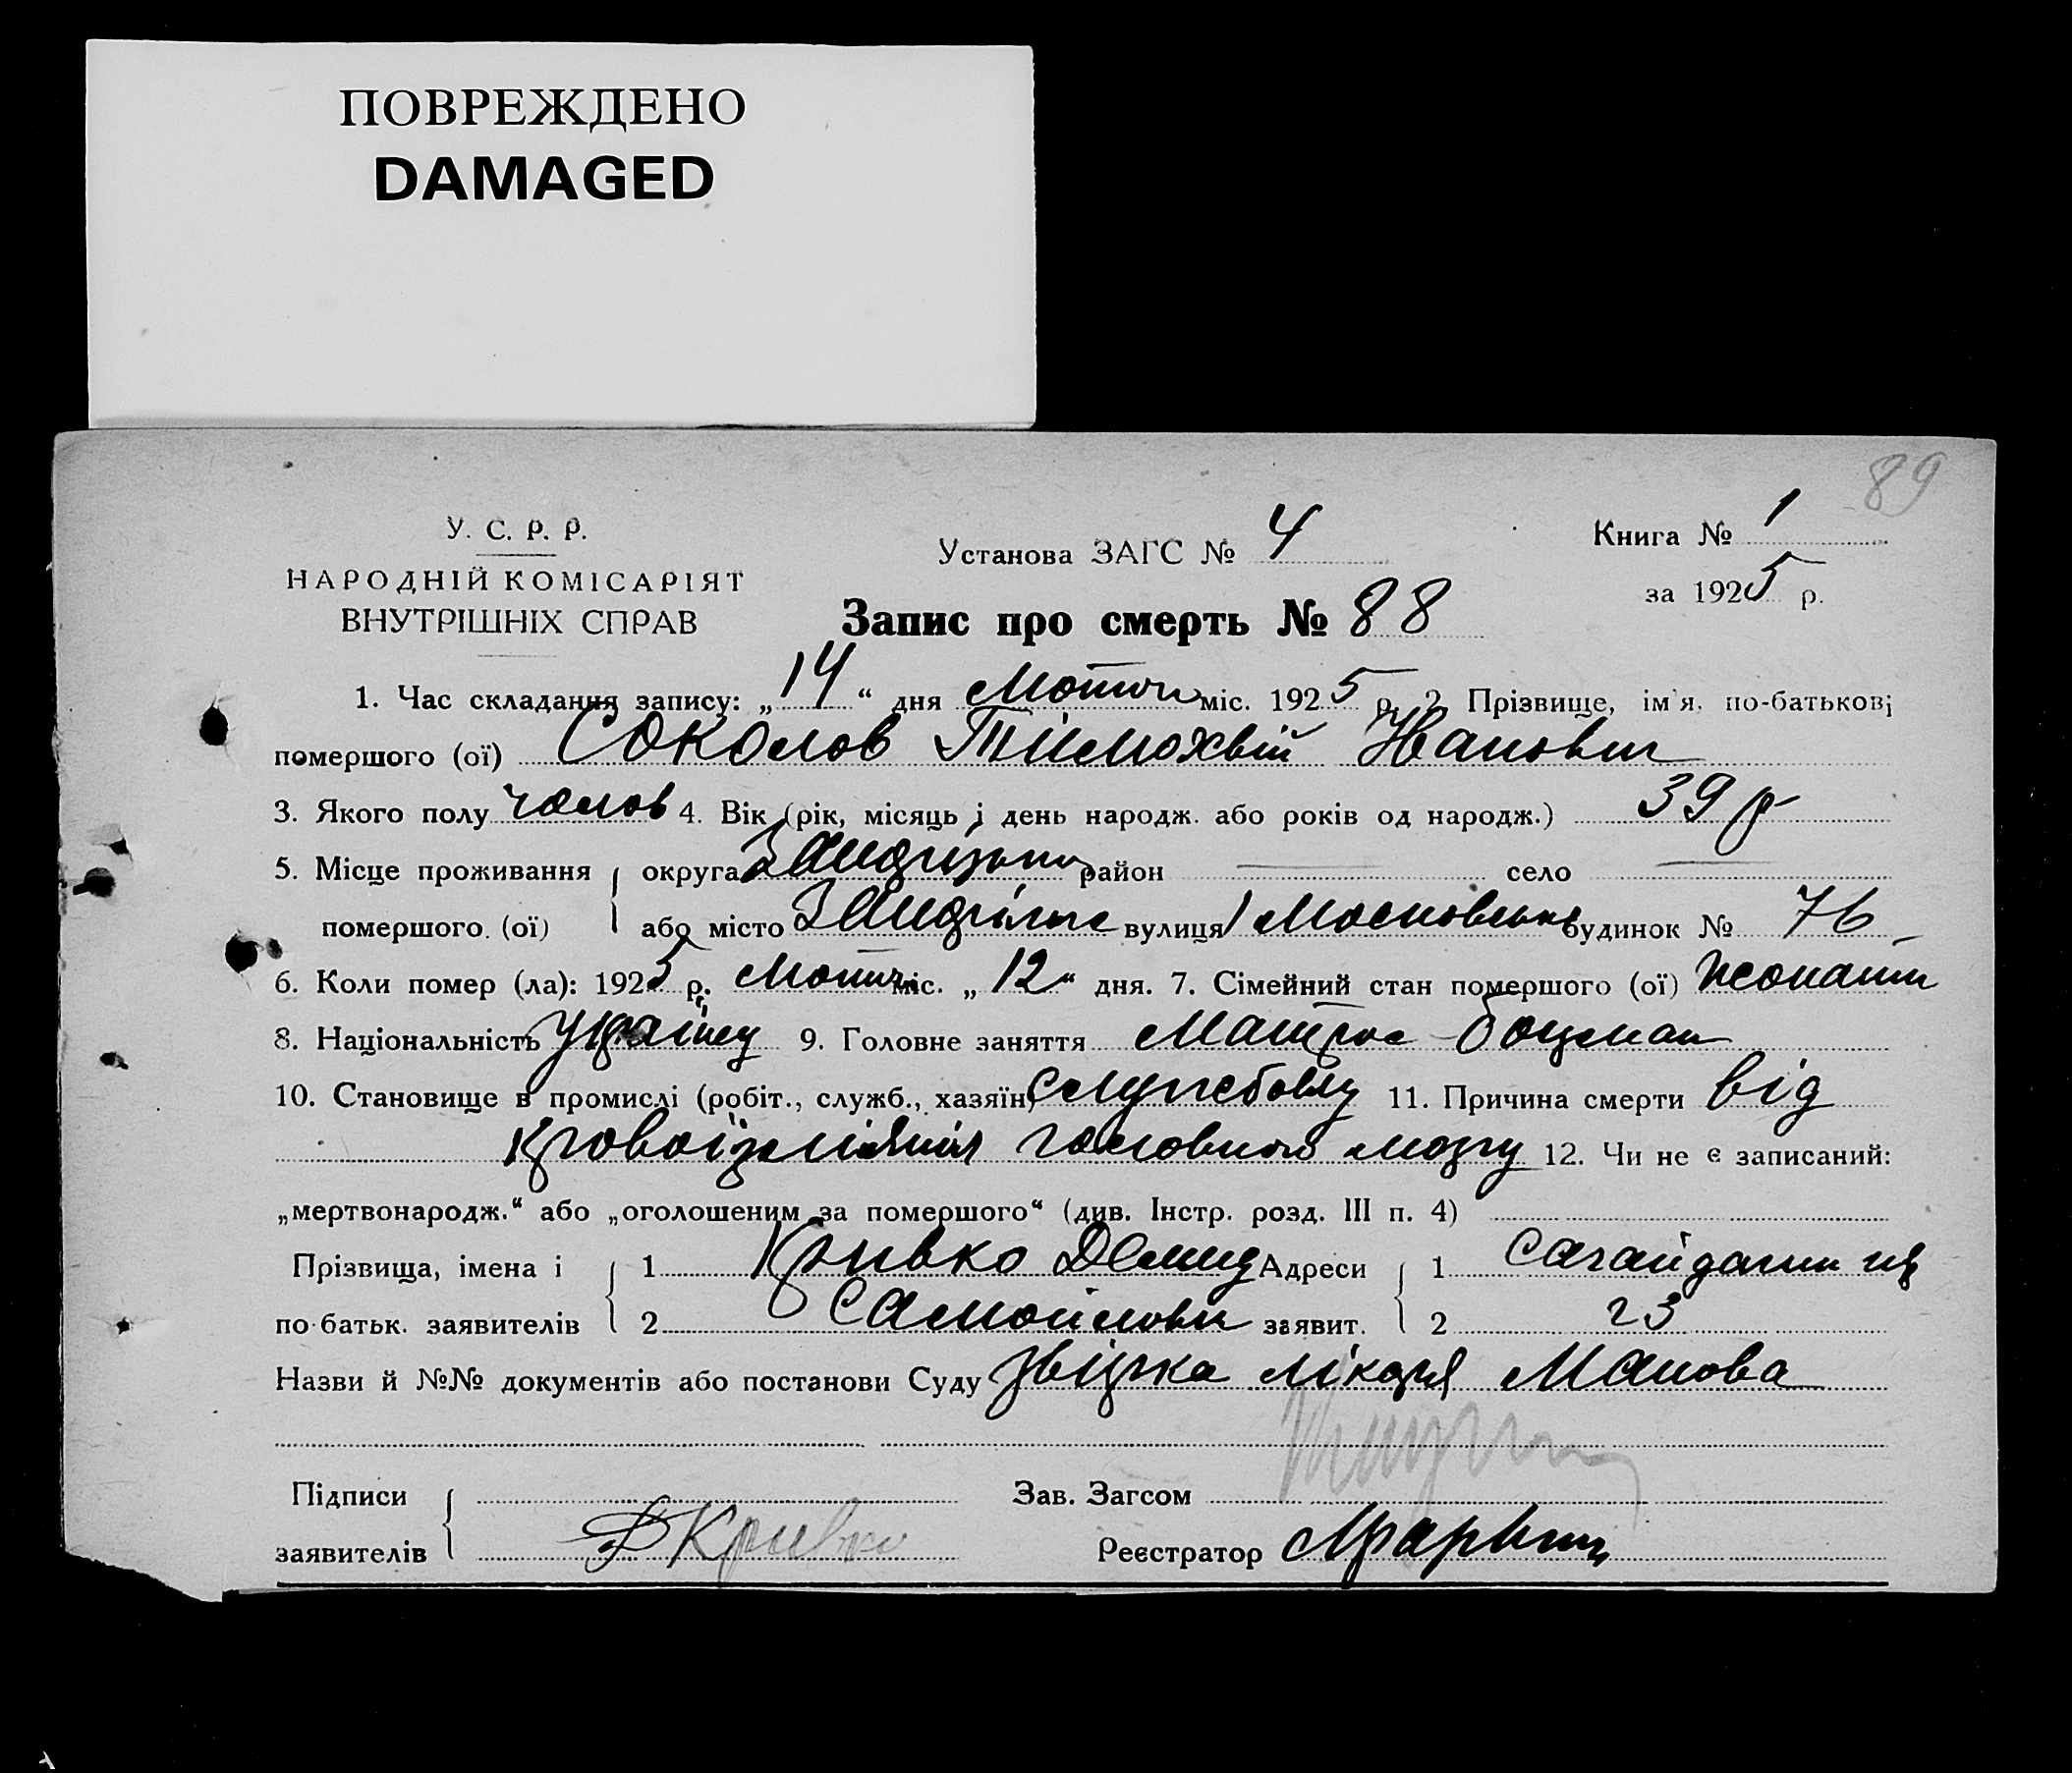 ПОВРЕЖДЕНО
DAMAGED
89
У. С. Р. Р.
НАРОДНІЙ КОМІСАРІЯТ
ВНУТРІШНІХ СПРАВ
Установа ЗАГС № 4
Книга № 1
за 1925 р.
Запис про смерть № 88
1. Час складання запису: „14“ дня міс. 1925 р. 2. Прізвище, ім'я, по-батькові
помершого (ої) Соколов Тимохвій Іванович
3. Якого полу чолов 4. Вік (рік, місяць і день народж. або років од народж.) 39 р
5. Місце проживання округа район село
помершого (ої) або місто вулиця Московська будинок № 76
6. Коли помер (ла): 1925 р. міс. „12“ дня. 7. Сімейний стан помершого (ої) жонатий
8. Національність Українец 9. Головне заняття Матрос боцман
10. Становище в промислі (робіт., служб., хазяїн) 11. Причина смерти від
головного мозгу 12. Чи не є записаний:
„мертвонародж.“ або „оголошеним за помершого“ (див. Інстр. розд. III п. 4)
Прізвища, імена і 1 Кривко Демид Адреси 1
по-батьк. заявителів 2 Самойлович заявит. 2 23
Назви й №№ документів або постанови Суду лікаря Манова
Підписи Зав. Загсом
заявителів ДКривко Реєстратор